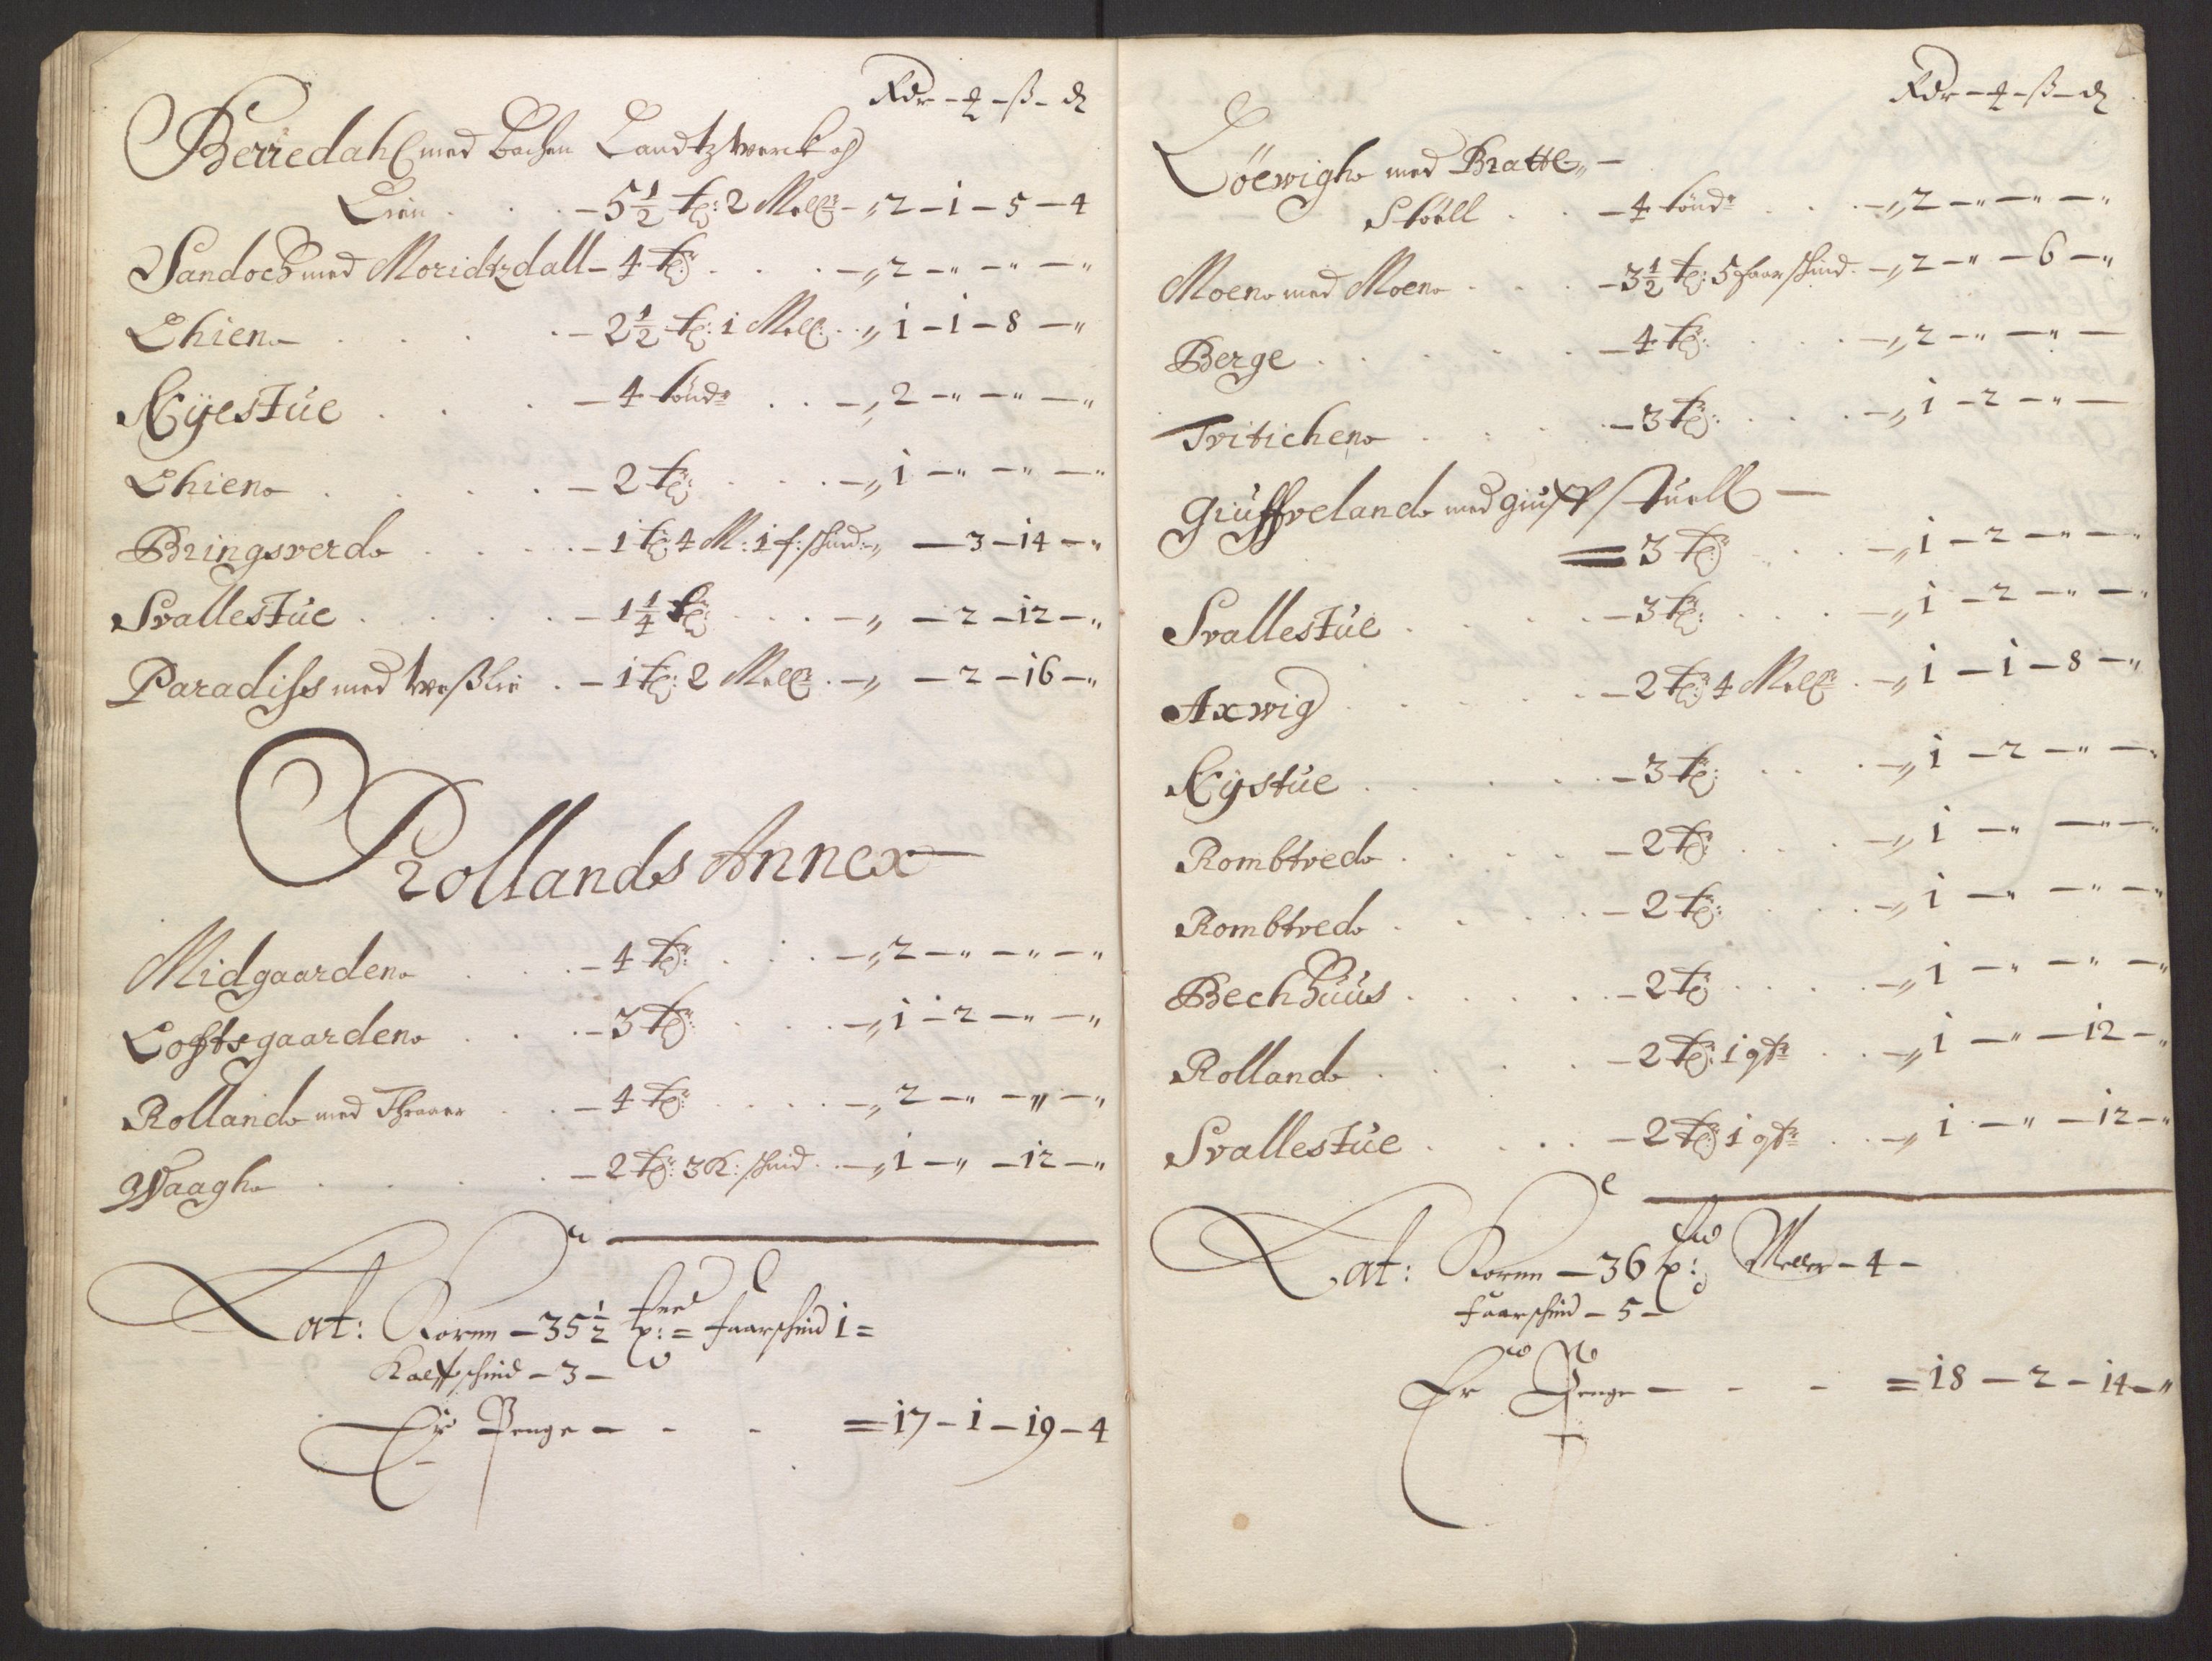 Rdr - ʒ - ß - ₰
Berriedahl med Bechen Landtzwerck og
Lien . . . – 5 1/2 tp: 2 Meller – „ 2 – i – 5 – 4
Sandoch med Moridtzdall – 4 tpr: . . . – „ 2 – „ – „ – „
Lhien . . . . – 2 1/2 tp: 1 Mell: . . „ i – i – 8 – „
Ryestue . . . – 4 tønder . . – „ 2 – „ – „ – „
Lhien . . . . – 2 tpr: . . . – „ i – „ – „ – „
Bringsverd . . . . – 1 tp: 4 M: 1 f: skind – „ – 3 – 14 – „
Svallestue . . . . . – 1 1/4 tpr: . . . – „ – 2 – 12 – „
Paradiss med Weßlie . – 1 tp: 2 Meller . – „ – 2 – 16 – „
Rollands Annex
Midgaarden . . . – 4 tpr: . . . – „ 2 – „ – „ – „
Loftsgaarden . . . – 3 tpr: . . . – „ i – 2 – „ – „
Rolland med . . – 4 tpr: . . . . – „ 2 – „ – „ – „
Waagh . . . . . – 2 tpr: 3 K: skind . . – „ 1 – „ – 12 – „
Lat: Korn – 35 1/2 tp: = faarschind 1 =
Kalfschind – 3 –
Er Penge – - - = 17 – i – 19 – 4
Rdr - ʒ - ß - ₰
Löewigh med Bratte„ –
Støell . . – 4 tønder . . . – „ 2 – „ – „ – „
Moen med Moen . . . – 3 1/2 tp: 5 faarskind . – „ 2 – „ – 6 – „
Berge . . . . . – 4 tpr: . . . – „ 2 – „ – „ –
Tvitichen . . . . – 3 tpr: . . . – „ i – 2 – „ –
Giuffveland med giuff Stuell –
= 3 tpr: . . . – „ i – 2 – „ – „
Svallestue . . . . – 3 tpr: . . . – „ i – 2 – „ – „
Axwig . . . . . – 2 tpr: 4 Meller . – „ 1 – i – 8 – „
Rystue . . . . . – 3 tpr: . . . – „ i – 2 – „ – „
Rombtved . . . . – 2 tpr: . . . – „ i – „ – „ – „
Rombtved . . . . – 2 tpr: . . . – „ i – „ – „ – „
Bechhuus . . . . – 2 tpr: . . . . – „ i – „ – „ – „
Rolland . . . . – 2 tpr: 1 qtr . . – „ 1 – „ – 12 – „
Svallestue . . . . – 2 tpr: 1 qtr . . – „ 1 – „ – 12 – „
Lat: Korn – 36 tp: Meller – 4 –
faarschind – 5 –
Er Penge – - - = 18 – 2 – 14 – „